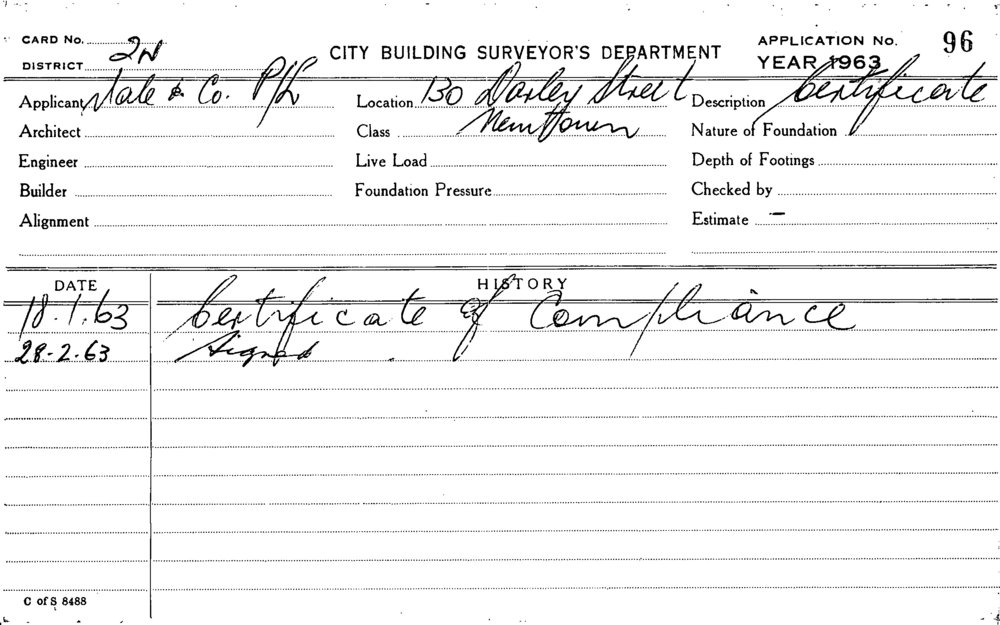 CARD No.
2N
DISTRICT
CITY BUILDING SURVEYOR'S DEPARTMENT
APPLICATION No. 96
YEAR 1963
Applicant & Co. P/L
Location 130 Darley Street
Description Certificate
Architect
Class Newtown
Nature of Foundation
Engineer
Live Load
Depth of Footings
Builder
Foundation Pressure
Checked by
Alignment
Estimate –
DATE
HISTORY
18.1.63 Certificate of Compliance
28-2.63 Signed .
C of S 8488